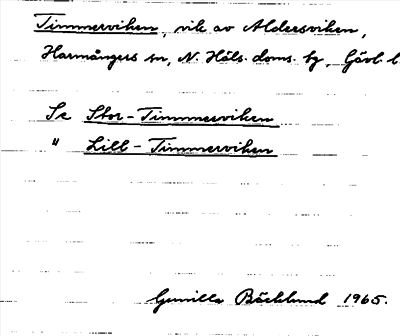 Timmerviken, vik av Aldersviken,
Harmångers sn, N. Häls. doms. hg, Gävl. l
Se Stor-Timmerviken
" Lill-Timmerviken
Gunilla Bäcklund 1965.